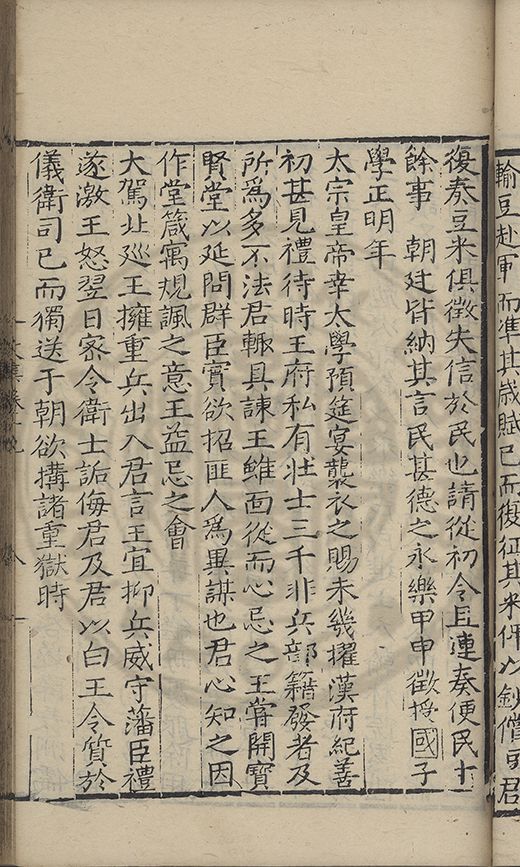 輸豆赴軍而準其歲賦已而復征其米仍以鈔償更君
復奏豆米俱徵失信於民也請從初令且連奏便民十
餘事　朝廷皆納其言民甚德之永樂甲申徵授國子
學正明年
太宗皇帝幸太學預筵宴襲衣之賜未幾擢漢府紀善
初甚見禮待時王府私有壯士三千非兵部籍發者及
所爲多不法君輙具諫王雖面從而心忌之王嘗開寶
賢堂以延問群臣實欲招匪人爲異謀也君心知之因
作堂箴寓規諷之意王益忌之會
大駕北廵王擁重兵出入君言王宜抑兵威守藩臣禮
遂激王怒翌日宻令衛士詬侮君及君以白王令質於
儀衛司已而獨送于朝欲搆諸重獄時